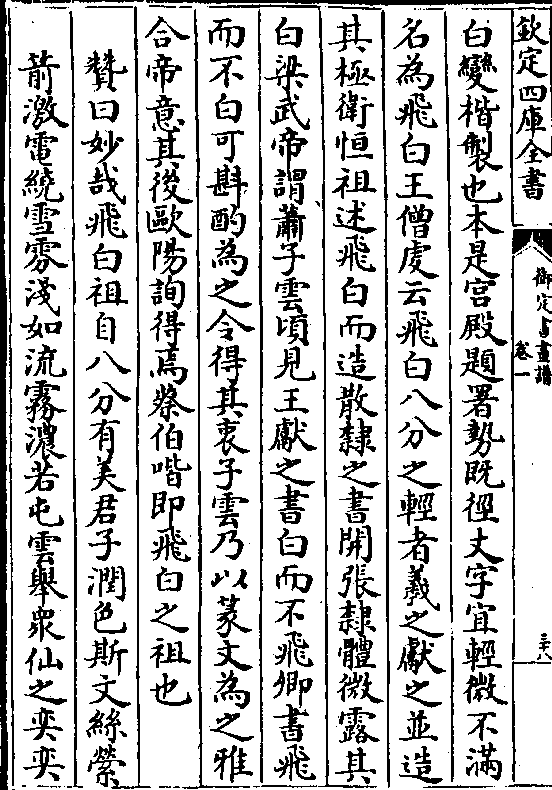 欽定四庫全書
御定書畫譜
卷一
三十八
白變楷製也本是宫殿題署勢既徑丈字宜輕微不滿
名為飛白王僧虔云飛白八分之輕者羲之獻之並造
其極衛恒祖述飛白而造散隸之書開張隸體微露其
白梁武帝謂蕭子雲頃見王獻之書白而不飛卿書飛
而不白可斟酌為之令得其衷子雲乃以篆文為之雅
合帝意其後歐陽詢得焉蔡伯喈即飛白之祖也
贊曰妙哉飛白祖自八分有美君子潤色斯文絲縈
箭激電繞雪雰淺如流霧濃若屯雲舉衆仙之奕奕